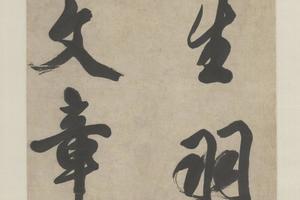 生羽
文章